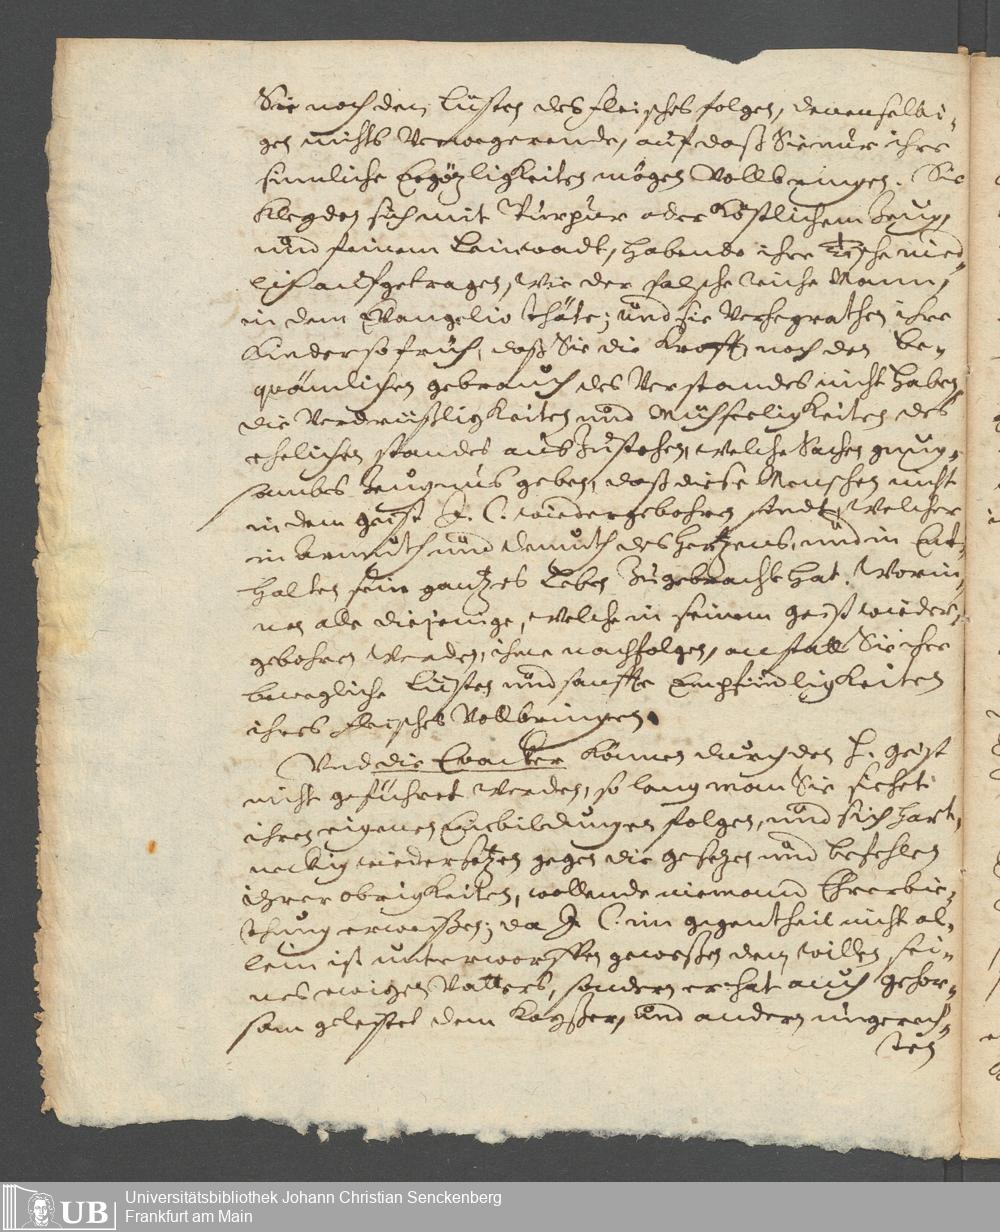 Sie nach den Lüsten des fleisches folgen, denenselbi-
gen nichts Verwegerende, auf daß Sie nur ihre
sinnliche Ergözligkeiten mögen Vollbringen. Sie
Kleyden sich mit Purpur oder Köstlichem Zeug,
und feinem Leinwadt, habende ihre Tische nied-
lich aufgetragen, wie der falsche reiche Mann,
in dem Evangelio thäte; und sie Verhegrathen ihre
Kinder so früh, daß Sie die Krafft noch den be-
quämlichen gebrauch des Verstandes nicht haben
die Verdrüßligkeiten und Mühseeligkeiten des
ehelichen standes auszustehen, welche Sachen gnug-
sambs Zeugnus geben, daß diese Menschen nicht
in dem geist J. C. wiedergebohren sindt, Welcher
in armuth und demuth des hertzens, und in Ent-
halten sein gantzes Leben zugebracht hat. Worin-
nen alle diejenige, welche in seinem geist wieder-
gebohren werden, ihme nachfolgen, anstatt Sie ihre
bewegliche Lüsten und sanffte Empfindligkeiten
ihres fleisches Vollbringen.
Und die Quacker können durch den H. geist
nicht geführet werden, so lang man Sie siehet
ihren eigenen Einbildungen folgen, und sich hart-
neckig wiedersetzen gegen die gesetzen und befehlen
ihrer obrigkeiten, wollende niemand Ehrerbie-
thung erweißen; da J. C. im gegentheil nicht al-
lein ist unterworffen geweßen dem willen sei-
nes ewigen Vatters, sondern er hat auch gehor-
sam geleistet dem Kayßer, und andern ungerech-
ten
Universitätsbibliothek Johann Christian Senckenberg
Frankfurt am Main
UB